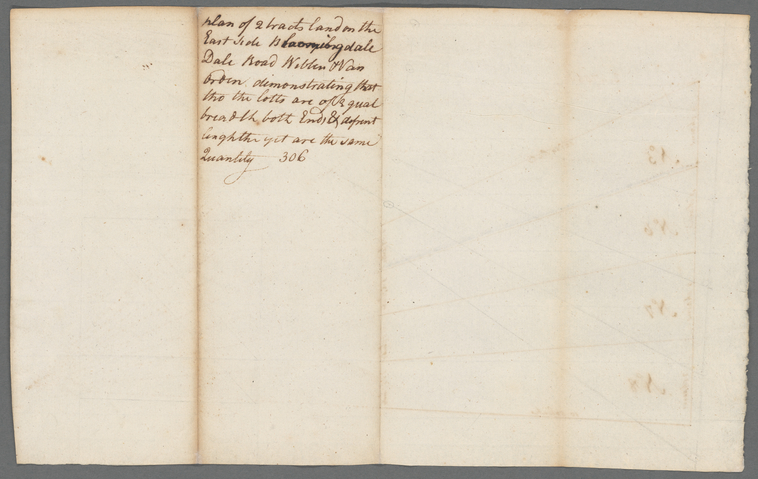 plan of 2 tracts land on the
East side Bloomingdale
Dale Road Webber & Van
Orden demonstrating that
tho the lotts are of Equal
breadth both Ends & difrent
lenghths yet are the same
Quantity 306